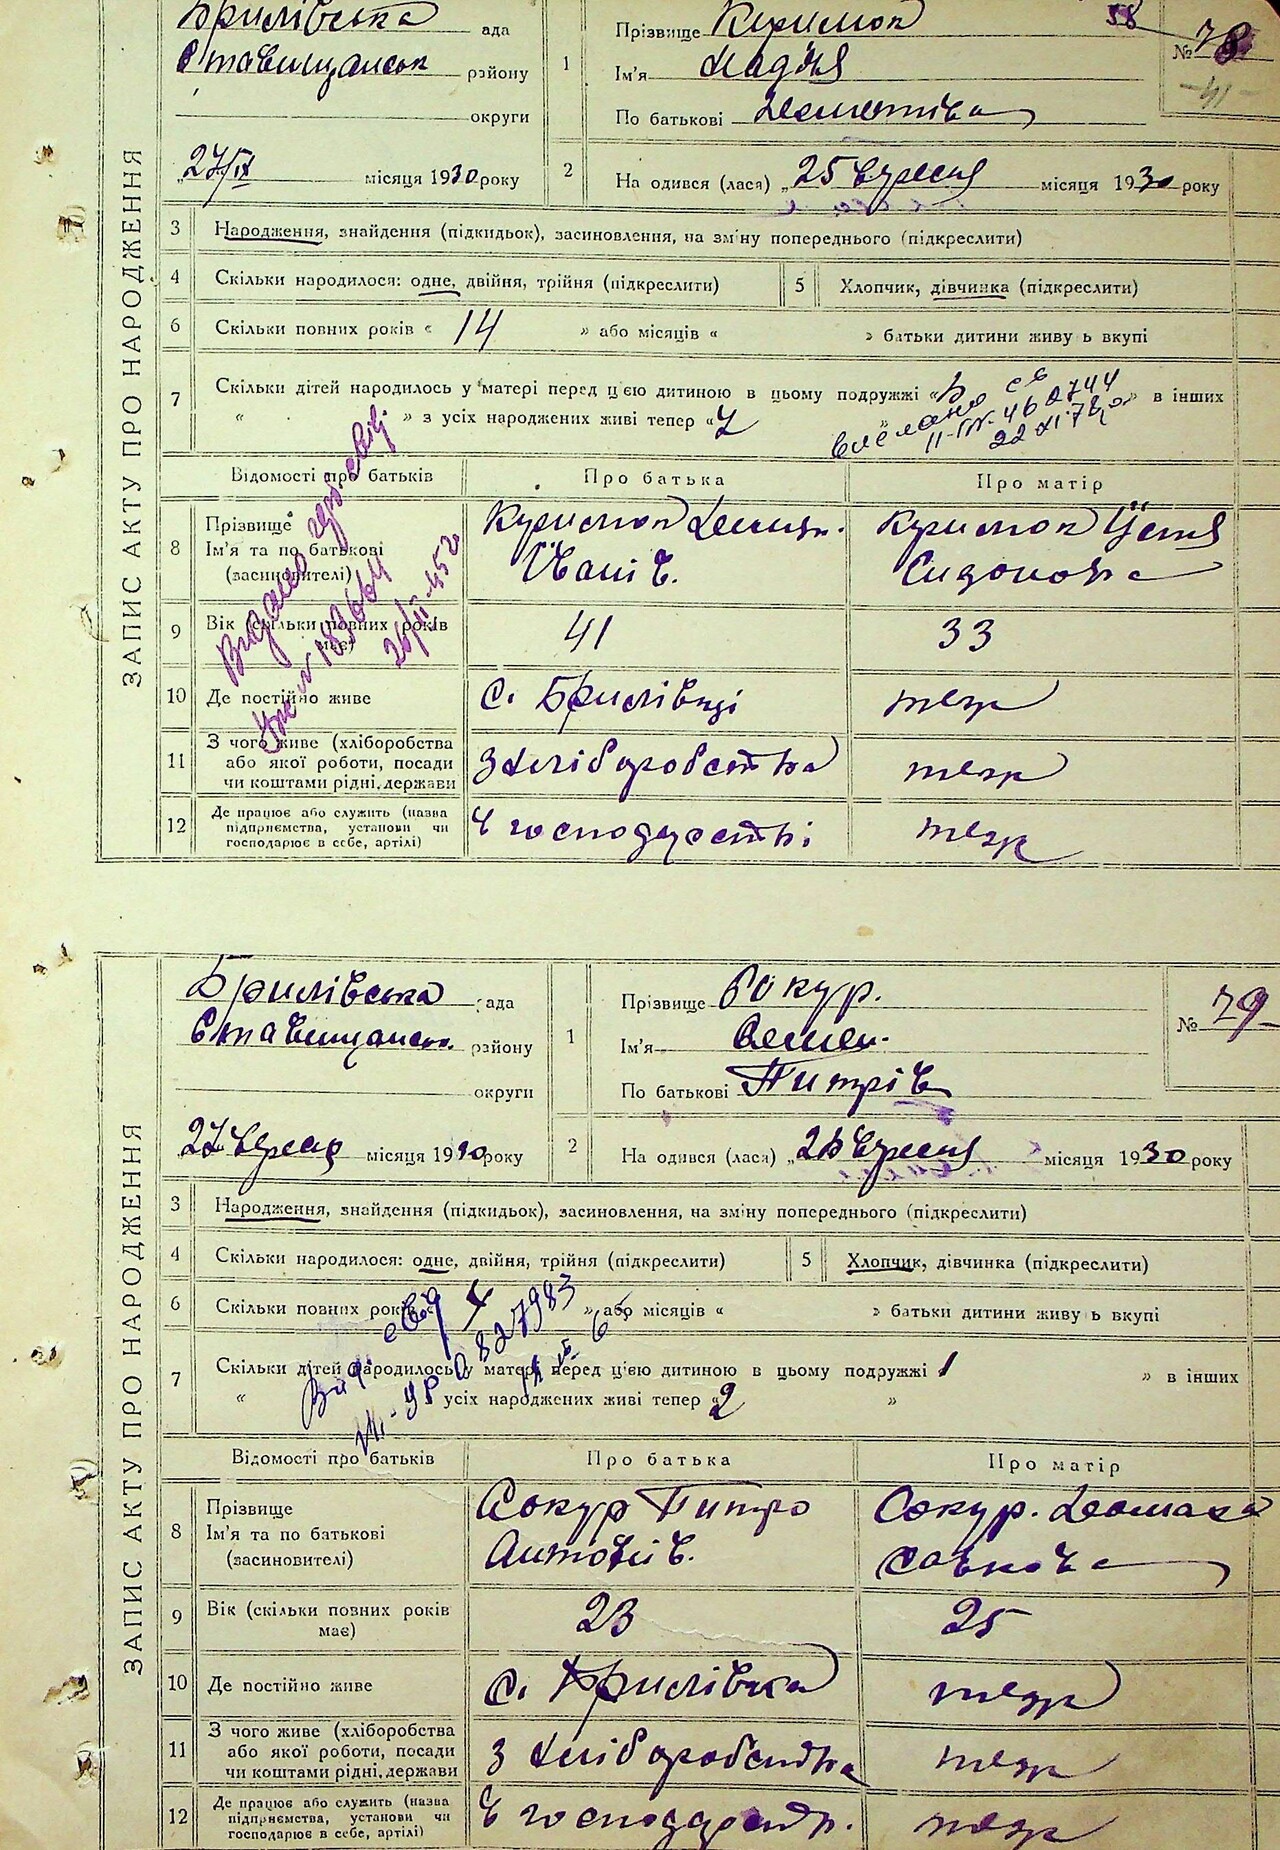 ЗАПИС АКТУ ПРО НАРОДЖЕННЯ
Брилівська ада
Ставищанськ району
округи
27/IX місяця 1930 року
1 Прізвище Куримок
Ім'я Надія
По батькові
58
№ 78
-41-
2 На одився (лася) „25 вересня місяця 1930 року
3 Народження, знайдення (підкидьок), засиновлення, на зм'ну попереднього (підкреслити)
4 Скільки народилося: одне, двійня, трійня (підкреслити)
5 Хлопчик, дівчинка (підкреслити)
6 Скільки повних років « 14 » або місяців « » батьки дитини живу ь вкупі
7 Скільки дітей народилось у матері перед ц'єю дитиною в цьому подружжі « » в інших
« » з усіх народжених живі тепер «
II- 462744
Видано
183664
Відомості про батьків Про батька Про матір
8 Прізвище
Ім'я та по батькові
(засиновителі)
Куримок
Іванів.
Куримок Устя
Сидоновна
9 Вік (скільки повних років має) 41 33
10 Де постійно живе с. Брилівці теж
11 З чого живе (хліборобства
або якої роботи, посади
чи коштами рідні, держави
З хліборобства теж
12 Де працює або служить (назва
підприємства, установи чи
господарює в себе, артілі)
В господарстві теж
ЗАПИС АКТУ ПРО НАРОДЖЕННЯ
Брилівська ада
Ставищанськ. району
округи
27 вересня місяця 1930 року
1 Прізвище Сокур.
Ім'я Семен.
По батькові Питрів
№ 79
2 На одився (лася) „26 вересня місяця 1930 року
3 Народження, знайдення (підкидьок), засиновлення, на зміну попереднього (підкреслити)
4 Скільки народилося: одне, двійня, трійня (підкреслити)
5 Хлопчик, дівчинка (підкреслити)
6 Скільки повних років « » або місяців « » батьки дитини живу ь вкупі
7 Скільки дітей народилось у матері перед ц'єю дитиною в цьому подружжі 1 » в інших
« усіх народжених живі тепер «2 »
827983
Відомості про батьків Про батька Про матір
8 Прізвище
Ім'я та по батькові
(засиновителі)
Сокур Питро
Антонів.
Сокур. Домаха
Савковна
9 Вік (скільки повних років має) 23 25
10 Де постійно живе с. Брилівка теж
11 З чого живе (хліборобства
або якої роботи, посади
чи коштами рідні, держави
З хліборобства теж
12 Де працює або служить (назва
підприємства, установи чи
господарює в себе, артілі)
В господарств. теж